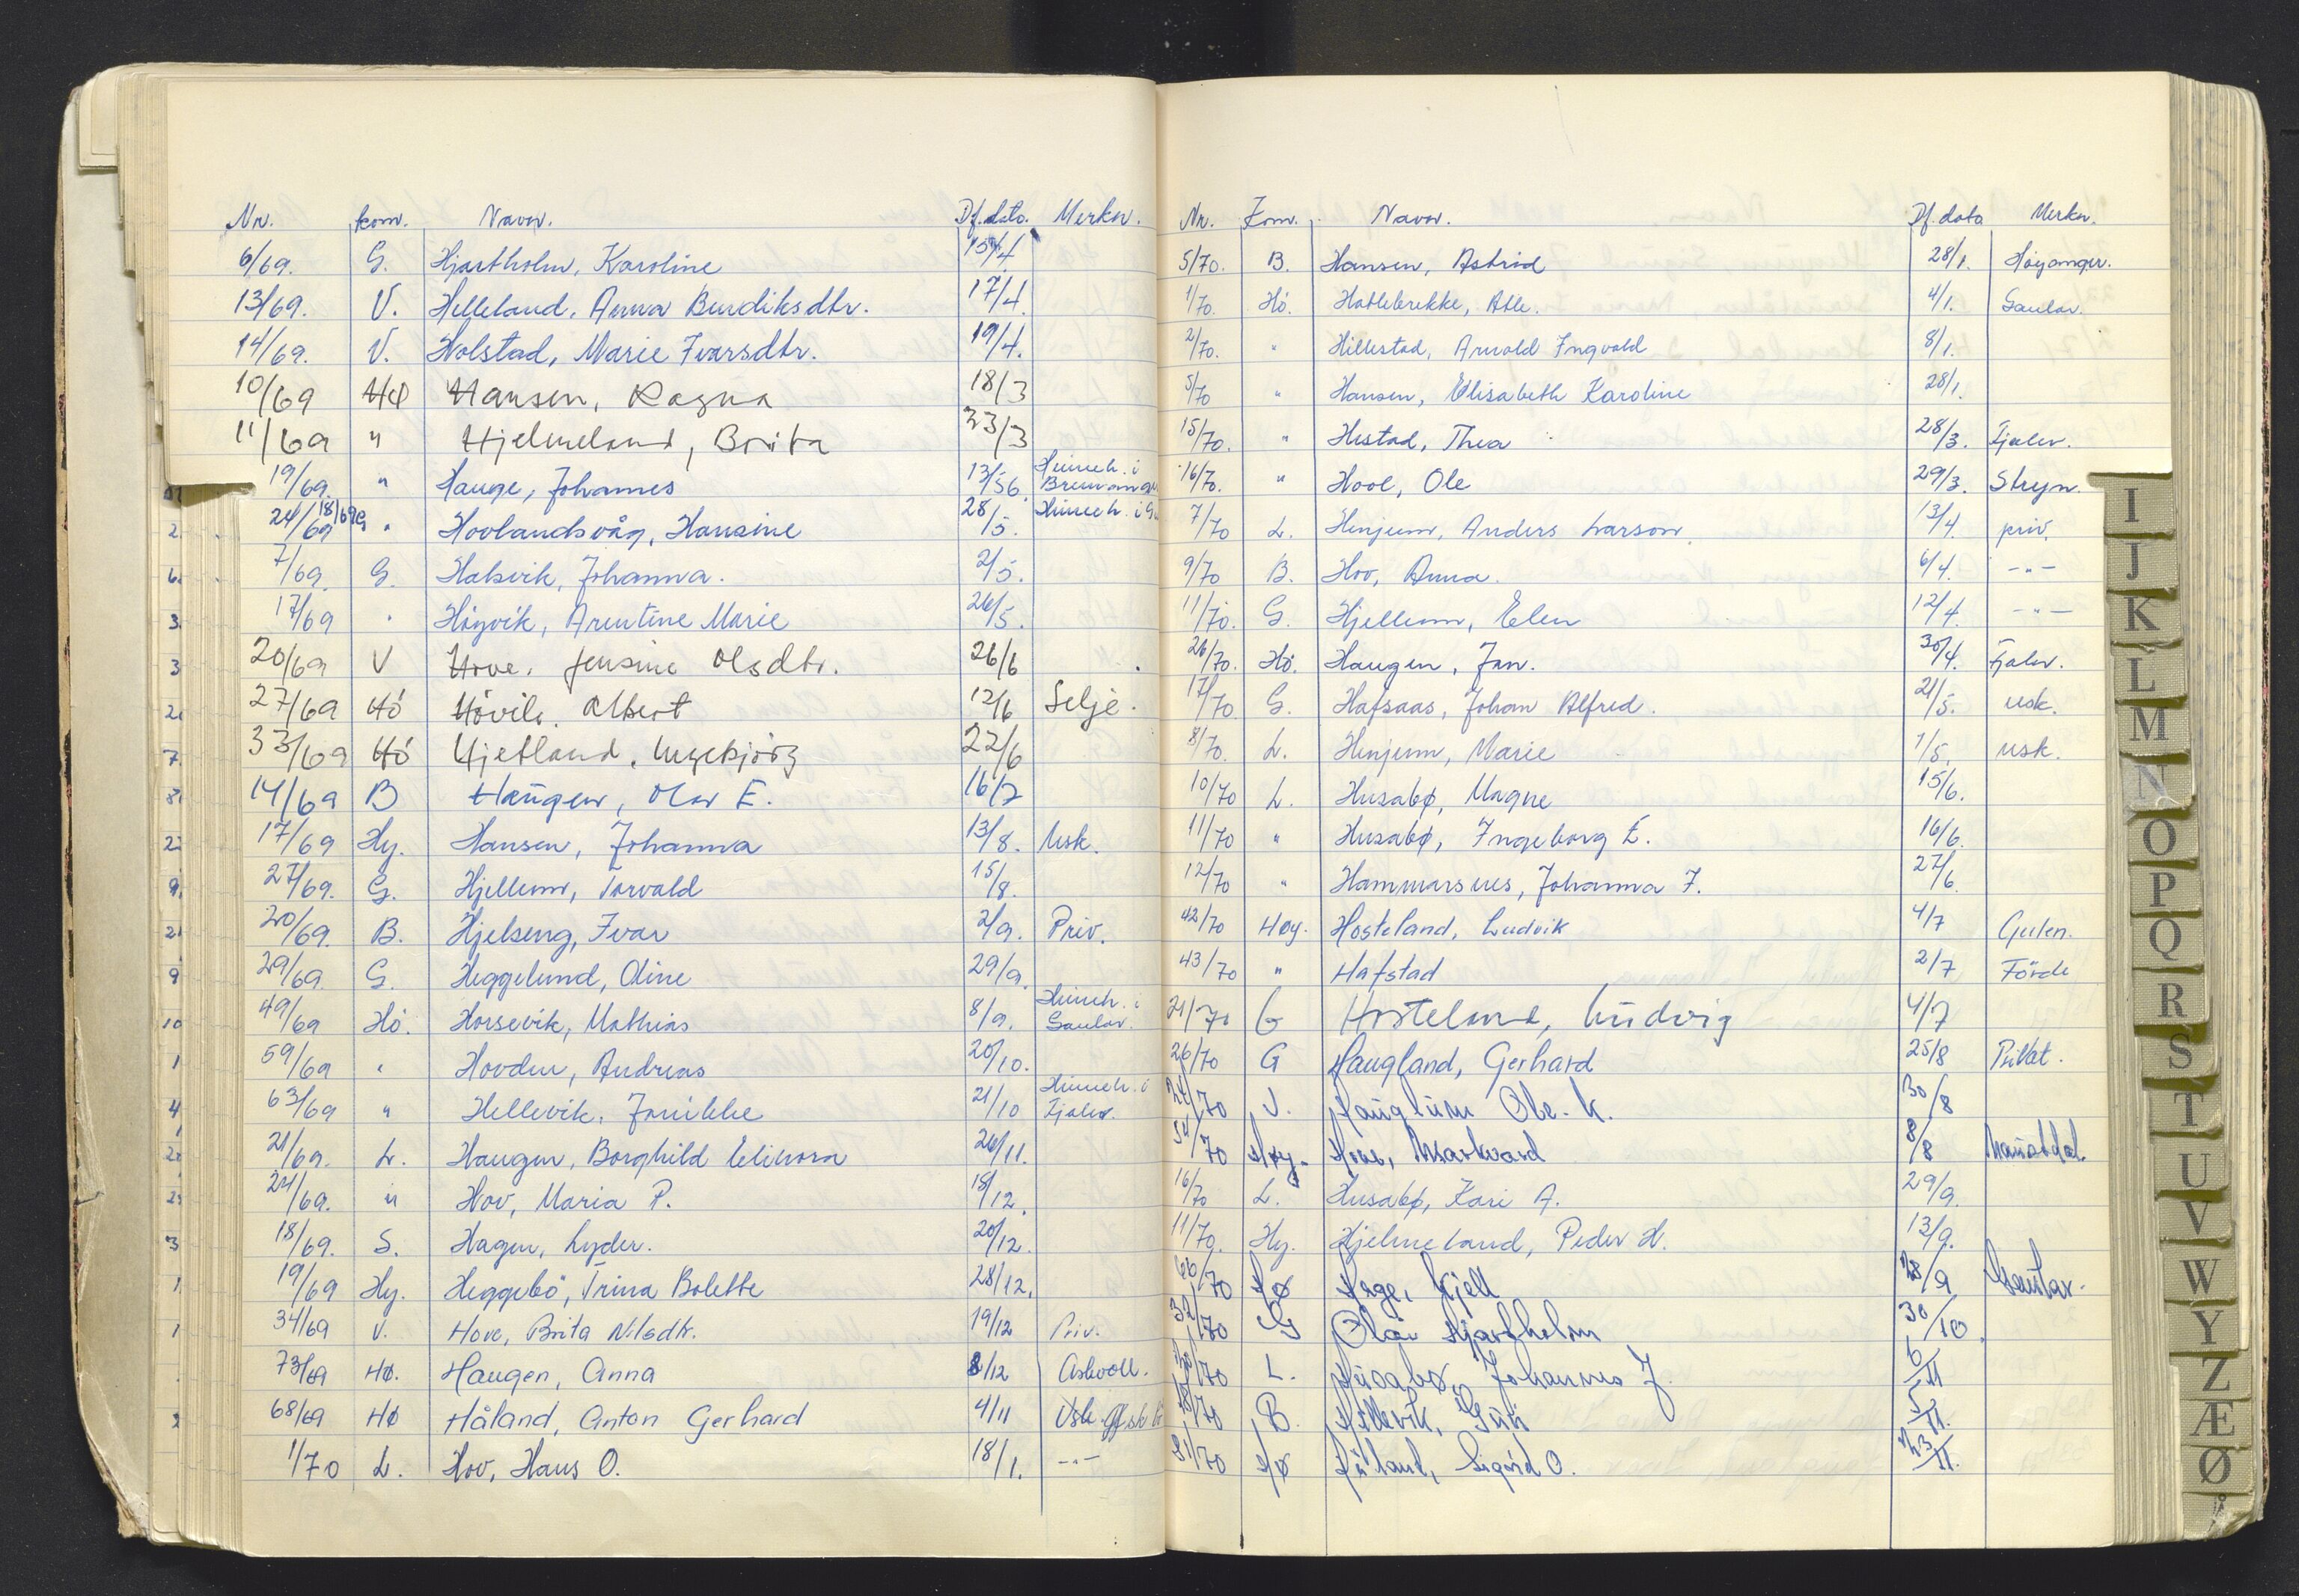 Nr. kom. Navn. Df.dato. Merkn.
6/69. G. Hjartholm, Karoline 15/4
13/69. V. Helleland, Anna Bendiksdtr. 17/4.
14/69. V. Holstad, Marie Ivarsdtr. 19/4.
10/69 HØ Hansen, Ragna 18/3
11/69 " Hjelmeland, Brita 23/3
19/69. " Hauge, Johannes 13/56. Heimeh. i Bremanger
24/69 18/69G " Hovlandsvåg, Hansine 28/5. Heimeh. i
7/69. G. Halsvik, Johanna. 2/5.
17/69 " Høyvik, Arentine Marie 26/5.
20/69 V Hove, Jensine Olsdtr. 26/6
27/69 Hö Hövik. Albert 12/6 Selje.
33/69 Hö Hjetland, Ingebjörg 22/6
14/69 B Haugen, Olav E. 16/7
17/69 Hy. Hansen, Johanna 13/8. Usk.
27/69. G. Hjellum, Torvald 15/8.
20/69. B. Hjelseng, Ivar 2/9. Priv.
29/69. G. Heggelund, Oline 29/9.
49/69 Hö. Horsevik, Mathias 8/9. Heimeh. i Gaular.
59/69 " Hovden, Andreas 20/10.
63/69 " Hellevik, Jonikke 21/10 Heimeh. i Fjaler.
21/69. L. Haugen, Borghild Elinora 26/11.
24/69. " Hov, Maria P. 18/12.
18/69. S. Hagen, Lyder. 20/12.
19/69 Hy. Heggebö, Trina Bolette 28/12.
34/69 V. Hove, Brita Nilsdtr. 19/12 Priv.
73/69 HØ. Haugen, Anna 8/12 Askvoll.
68/69 HØ Håland, Anton Gerhard 4/11 Usk.
1/70 L. Hov, Hans O. 18/1. -"-
Nr. Kom. Navn. Df. dato Merkn.
5/70. B. Hansen, Astrid 28/1. Høyanger.
1/70. Hö. Hatlebrekke, Atle. 4/1. Gaular.
2/70. " Hillestad, Arnold Ingvald 8/1.
5/70 " Hansen, Elisabeth Karoline 28/1.
15/70. " Hestad, Thea 28/3. Fjaler.
16/70. " Hool, Ole 29/3. Stryn.
7/70 L. Henjum, Anders Larson. 13/4. priv.
9/70 B. Hov, Anna. 6/4. -"-
11/70. G. Hjellum, Elen 12/4. -"-
26/70. Hö. Haugen, Jan. 30/4. Fjaler.
17/70 G. Hafsaas, Johan Alfred. 21/5. usk.
8/70. L. Henjum, Marie 1/5. usk.
10/70 L. Husabø, Magne 15/6.
11/70 " Husabø, Ingeborg E. 16/6.
12/70 " Hammarsnes, Johanna J. 27/6.
42/70 Høy. Hosteland, Ludvik 4/7 Gulen.
43/70 " Hafstad 2/7 Förde
21/70 G Hosteland, Ludvig 4/7
26/70 G Haugland, Gerhard 25/8 Privat.
24/70 V. Hauglum Ole. K. 30/8
54/70 Høy. Hove, Markvard 8/8 Naustdal.
16/70 L. Husabø, Kari A. 29/9.
11/70. Hy. Hjelmeland, Peder H. 13/9.
66/70 Hø Hage, Kjell 28/9 Gaular.
32/70 G Olav Hjartholm 30/10.
70 L. Husabø, Johannes J. 6/11
18/70 B. Hellevik, Guri 5/11.
81/70 Hø Håland, Sigurd O. 23/11.
I
J
K
L
M
N
O
P
Q
R
S
T
U
V
W
Y
Z
Æ
Ø